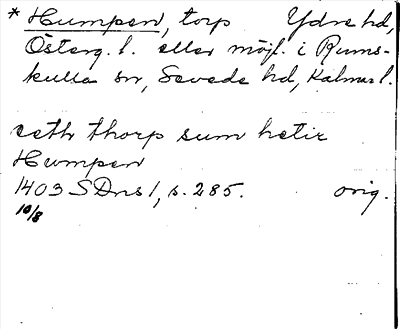 * Humpen, torp Ydre hd,
Österg. l. eller möjl. i Rums-
kulla sn, Sevede hd, Kalmar l.
eeth thorp sum hetir
Humpen
1403 SDns 1, s. 285. orig.
10/8